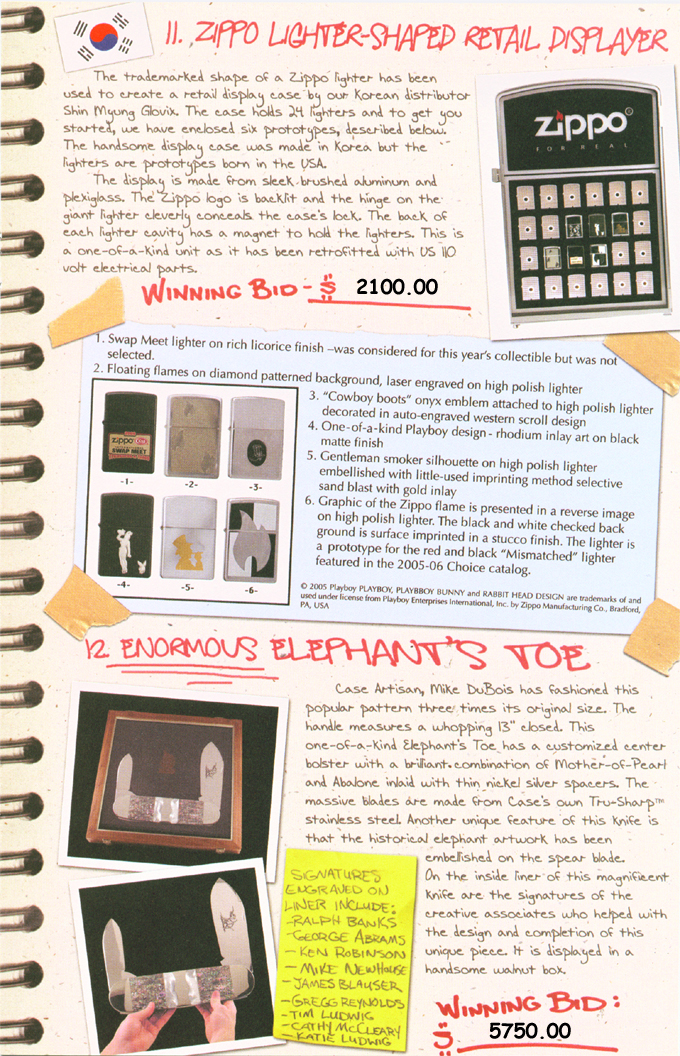 11. ZIPPO LIGHTER-SHAPED RETAIL DISPLAYER
The trademarked shape of a Zippo lighter has been
used to create a retail display case by our Korean distributor
Shin Myung Glovix. The case holds 24 lighters and to get you
started, we have enclosed six prototypes, described below.
The handsome display case was made in Korea but the
lighters are prototypes born in the USA.
The display is made from sleek brushed aluminum and
plexiglass. The Zippo logo is backlit and the hinge on the
giant lighter cleverly conceals the case's lock. The back of
each lighter cavity has a magnet to hold the lighters. This is
a one-of-a-kind unit as it has been retrofitted with US 110
volt electrical parts.
WINNING BID - $ 2100.00
zippo
FOR REAL
1. Swap Meet lighter on rich licorice finish –was considered for this year's collectible but was not
selected.
2. Floating flames on diamond patterned background, laser engraved on high polish lighter
3. "Cowboy boots" onyx emblem attached to high polish lighter
decorated in auto-engraved western scroll design
4. One-of-a-kind Playboy design - rhodium inlay art on black
matte finish
5. Gentleman smoker silhouette on high polish lighter
embellished with little-used imprinting method selective
sand blast with gold inlay
6. Graphic of the Zippo flame is presented in a reverse image
on high polish lighter. The black and white checked back
ground is surface imprinted in a stucco finish. The lighter is
a prototype for the red and black "Mismatched" lighter
featured in the 2005-06 Choice catalog.
zippo
SWAP MEET
-1-
-2-
-3-
-4-
-5-
-6-
© 2005 Playboy PLAYBOY, PLAYBBOY BUNNY and RABBIT HEAD DESIGN are trademarks of and
used under license from Playboy Enterprises International, Inc. by Zippo Manufacturing Co., Bradford,
PA, USA
12. ENORMOUS ELEPHANT'S TOE
Case Artisan, Mike DuBois has fashioned this
popular pattern three times its original size. The
handle measures a whopping 13" closed. This
one-of-a-kind Elephant's Toe has a customized center
bolster with a brilliant combination of Mother-of-Pearl
and Abalone inlaid with thin nickel silver spacers. The
massive blades are made from Case's own Tru-Sharp™
stainless steel. Another unique feature of this knife is
that the historical elephant artwork has been
embellished on the spear blade.
On the inside liner of this magnificent
knife are the signatures of the
creative associates who helped with
the design and completion of this
unique piece. It is displayed in a
handsome walnut box.
SIGNATURES
ENGRAVED ON
LINER INCLUDE:
-RALPH BANKS
-GEORGE ABRAMS
- KEN ROBINSON
- MIKE NEWHOUSE
-JAMES BLAUSER
-GREGG REYNOLDS
-TIM LUDWIG
-CATHY MCCLEARY
-KATIE LUDWIG
WINNING BID:
$ 5750.00